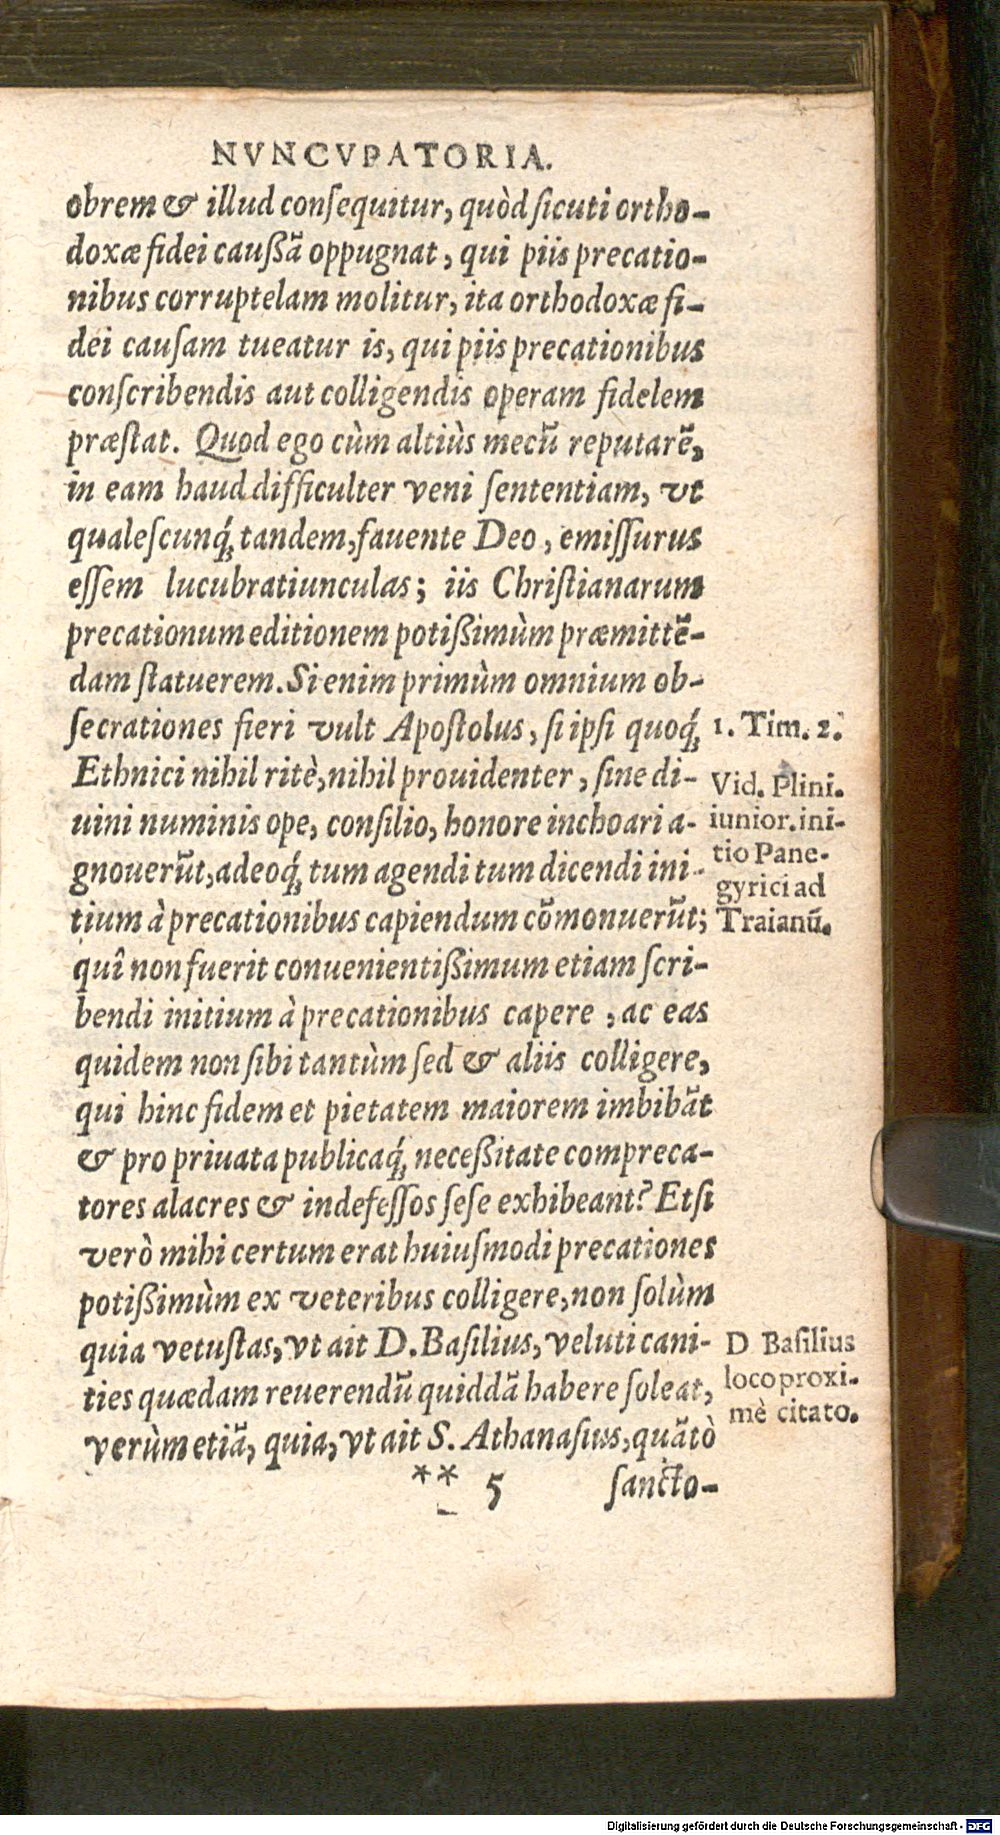 NVNCVPATORIA.
obrem & illud conſequitur, quòd ſicuti ortho-
doxæ fidei caußã oppugnat, qui piis precatio-
nibus corruptelam molitur, ita orthodoxæ fi-
dei cauſam tueatur is, qui piis precationibus
conſcribendis aut colligendis operam fidelem
præſtat. Quod ego cùm altiùs mecũ reputarẽ,
in eam haud difficulter veni ſententiam, vt
qualeſcunq́; tandem, fauente Deo, emiſſurus
eſſem lucubratiunculas; iis Chriſtianarum
precationum editionem potißimùm præmittẽ-
dam ſtatuerem. Si enim primùm omnium ob-
ſecrationes fieri vult Apoſtolus, ſi ipſi quoq́;
1. Tim. 2.
Ethnici nihil ritè, nihil prouidenter, ſine di-
uini numinis ope, conſilio, honore inchoari a-
gnouerũt, adeoq́; tum agendi tum dicendi ini-
tium à precationibus capiendum cõmonuerũt;
Vid. Plini.
iunior. ini-
tio Pane-
gyrici ad
Traianũ.
quî non fuerit conuenientißimum etiam ſcri-
bendi initium à precationibus capere, ac eas
quidem non ſibi tantùm ſed & aliis colligere,
qui hinc fidem et pietatem maiorem imbibãt
& pro priuata publicaq́; neceßitate compreca-
tores alacres & indefeſſos ſeſe exhibeant? Etſi
verò mihi certum erat huiuſmodi precationes
potißimùm ex veteribus colligere, non ſolùm
quia vetuſtas, vt ait D. Baſilius, veluti cani-
ties quædam reuerendũ quiddã habere ſoleat,
verùm etiã, quia, vt ait S. Athanaſius, quãtò
D Baſilius
loco proxi-
mè citato.
** 5 ſancto-
Digitalisierung gefördert durch die Deutsche Forschungsgemeinschaft - DFG